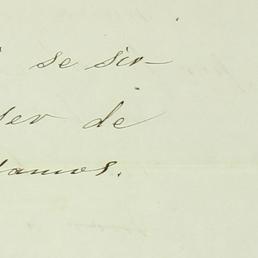 se sir-
ser de
lamos.